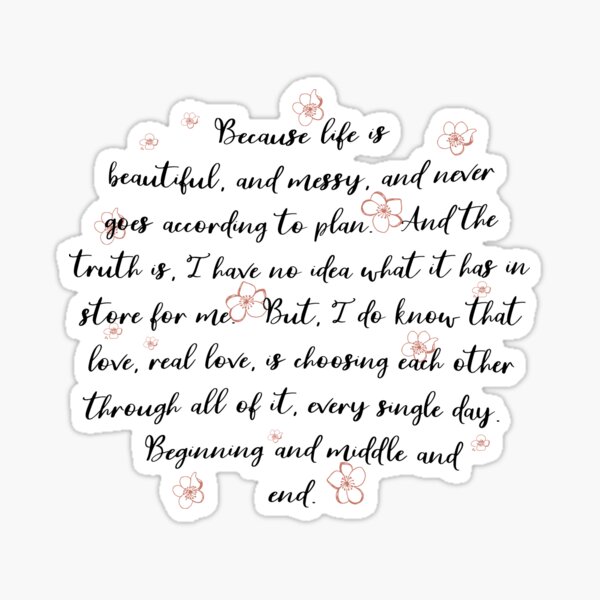 Because life is
beautiful, and messy, and never
goes according to plan. And the
truth is, I have no idea what it has in
store for me. But, I do know that
love, real love, is choosing each other
through all of it, every single day.
Beginning and middle and
end.